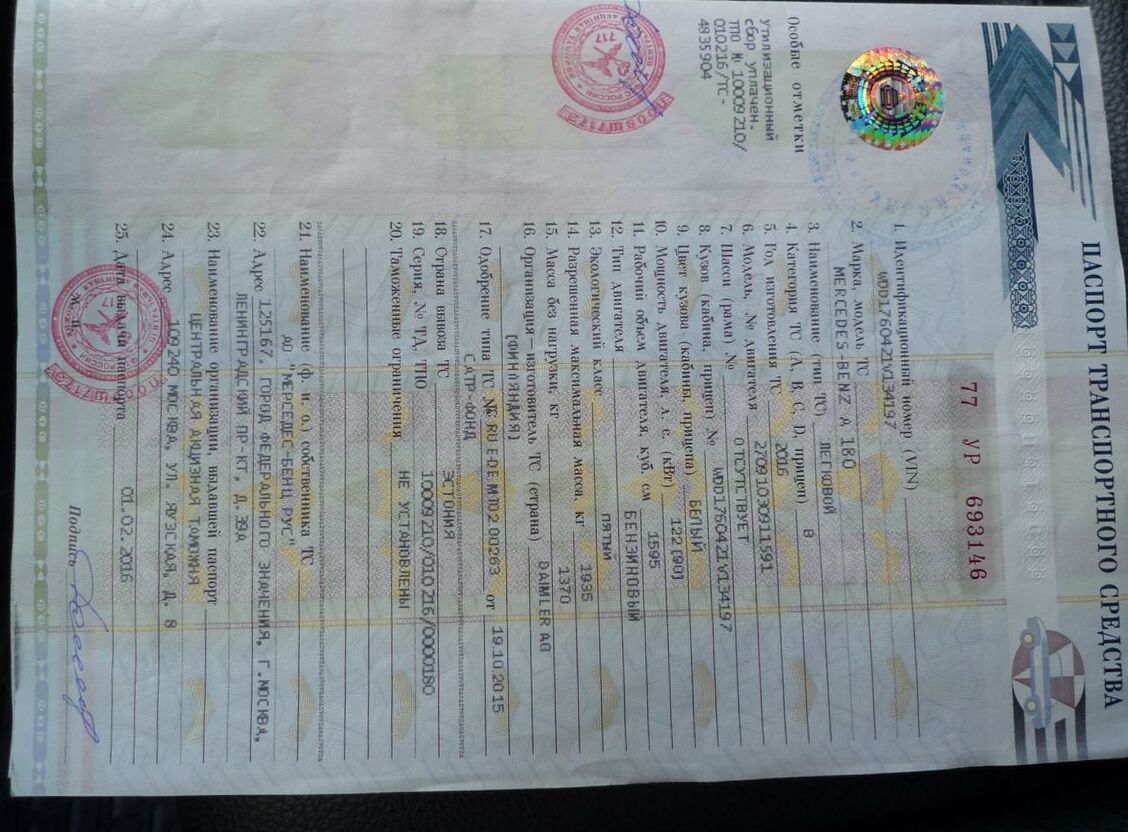 ПАСПОРТ ТРАНСПОРТНОГО СРЕДСТВА
77 УР 693146
1. Идентификационный номер (VIN)
WDD1760421V134197
2. Марка, модель ТС
MERCEDES-BENZ A 180
3. Наименование (тип ТС) ЛЕГКОВОЙ
4. Категория ТС (А, В, С, D, прицеп) B
5. Год изготовления ТС 2016
6. Модель, № двигателя 27091030911591
7. Шасси (рама) № ОТСУТСТВУЕТ
8. Кузов (кабина, прицеп) № WDD1760421V134197
9. Цвет кузова (кабины, прицепа) БЕЛЫЙ
10. Мощность двигателя, л. с. (кВт) 122 (90)
11. Рабочий объем двигателя, куб. см 1595
12. Тип двигателя БЕНЗИНОВЫЙ
13. Экологический класс ПЯТЫЙ
14. Разрешенная максимальная масса, кг 1935
15. Масса без нагрузки, кг 1370
16. Организация—изготовитель ТС (страна) DAIMLER AG
(ФИНЛЯНДИЯ)
17. Одобрение типа ТС № RU E-DE.MT02.00263 от 19.10.2015
САТР-ФОНД
18. Страна вывоза ТС ЭСТОНИЯ
19. Серия, № ТД, ТПО 10009210/010216/0000180
20. Таможенные ограничения НЕ УСТАНОВЛЕНЫ
21. Наименование (ф. и. о.) собственника ТС
АО "МЕРСЕДЕС-БЕНЦ РУС"
22. Адрес 125167, ГОРОД ФЕДЕРАЛЬНОГО ЗНАЧЕНИЯ, Г.МОСКВА,
ЛЕНИНГРАДСКИЙ ПР-КТ, Д.39А
23. Наименование организации, выдавшей паспорт
ЦЕНТРАЛЬНАЯ АКЦИЗНАЯ ТАМОЖНЯ
24. Адрес 109240 МОСКВА, УЛ. ЯУЗСКАЯ, Д. 8
25. Дата выдачи паспорта 01.02.2016
М. П.
Подпись
Особые отметки
УТИЛИЗАЦИОННЫЙ
СБОР УПЛАЧЕН.
ТПО № 10009210/
010216/ТС-
4835904
717
717